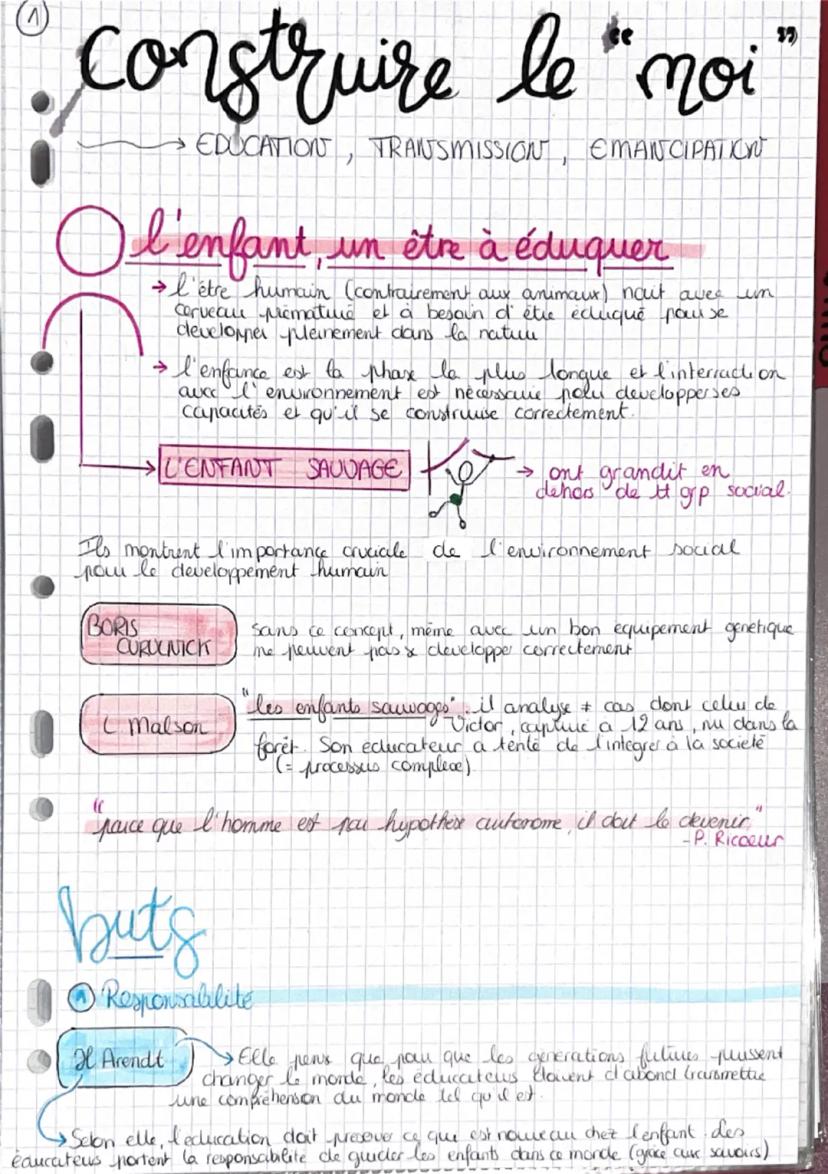 1
Construire le "moi"
→ EDUCATION, TRANSMISSION, EMANCIPATION
l'enfant, un être à éduquer
→ l'être humain (contrairement aux animaux) nait avec un
cerveau prématuré et à besoin d'être éduqué pour se
developper pleinement dans la nature
→ l'enfance est la phase la plus longue et l'interraction
avec l'environnement est nécessaire pour developper ses
capacités et qu'il se construise correctement.
L'ENFANT SAUVAGE
→ ont grandit en
dehors de tt grp social.
Ils montrent l'importance cruciale de l'environnement social
pour le developpement humain
BORIS
CURULNICK
sans ce concept, même avec un bon equipement genetique
ne peuvent pas se developper correctement
L Malson
"les enfants sauvages". il analyse ≠ cas dont celui de
Victor, capturé à 12 ans, nu dans la
forêt. Son educateur a tenté de l'integrer à la societé
(= processus complexe).
"parce que l'homme est par hypothèse autonome, il doit le devenir"
-P. Ricoeur
buts
1 Responsabilité
H Arendt
→ Elle pense que pour que les générations futures puissent
changer le monde, les éducateurs doivent d'abord transmettre
une compréhension du monde tel qu'il est.
→ Selon elle, l'education doit preserver ce que est nouveau chez l'enfant. des
éducateurs portent la responsabilité de guider les enfants dans ce monde (grâce aux savoirs)